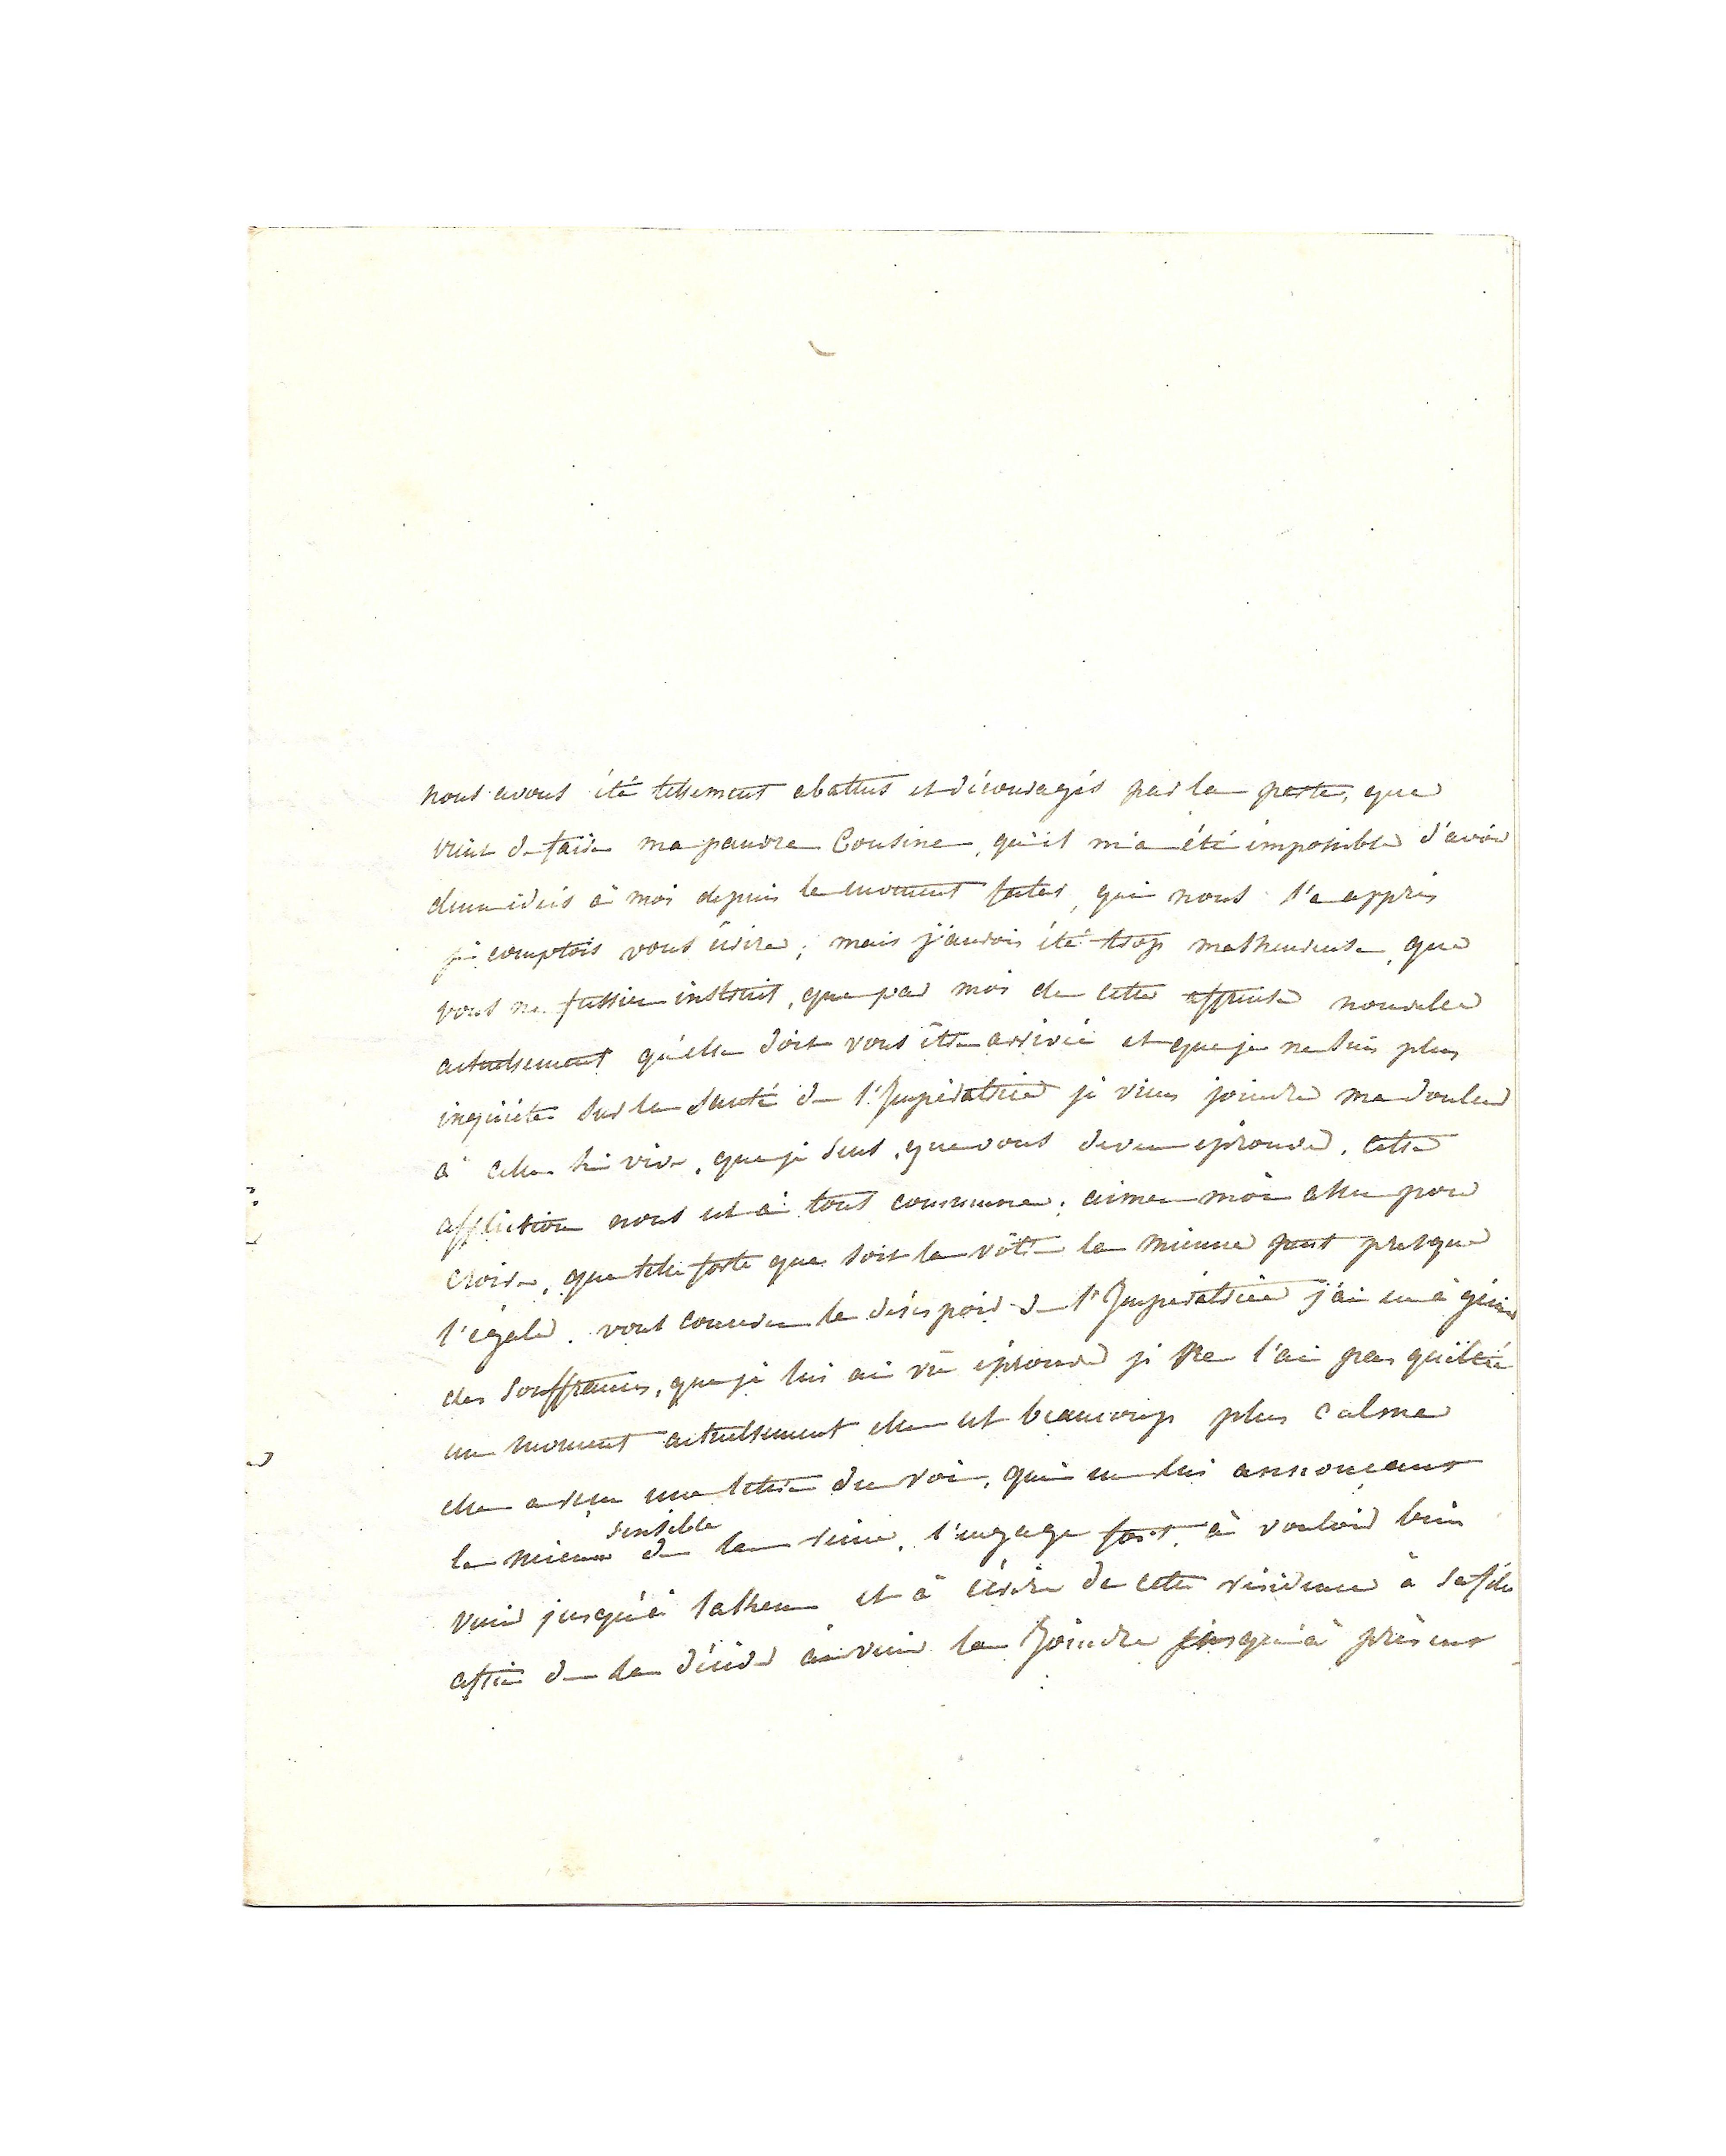 nous avons été tellement abattus et découragés par la perte, que
vient de faire ma pauvre Cousine, qu'il m'a été impossible d'avoir
deux idées à moi depuis le moment fatal, qui nous l'a appris
je comptois vous écrire; mais j'aurois été trop malheureuse, que
vous ne fussiez instruit, que par moi de cette affreuse nouvelle
actuellement qu'elle doit vous être arrivée et que je ne suis plus
inquiète sur la santé de l'Impératrice je viens joindre ma douleur
à celle si vive, que je sens, que vous devez éprouver. cette
affliction nous est à tous commune; aimez moi assez pour
croire, que telle forte que soit la vôtre la mienne peut presque
l'égaler. vous concevez le désespoir de l'Impératrice j'ai eu à gémir
des souffrances, que je lui ai vu éprouver je ne l'ai pas quittée
un moment actuellement elle est beaucoup plus calme
elle a reçu une lettre du roi, qui en lui annonçant
le mieux sensible de la reine, l'engage fort, à vouloir bien
venir jusqu'à laken et à écrire de cette résidence à sa fille
afin de la décider à venir la joindre jusqu'à présent